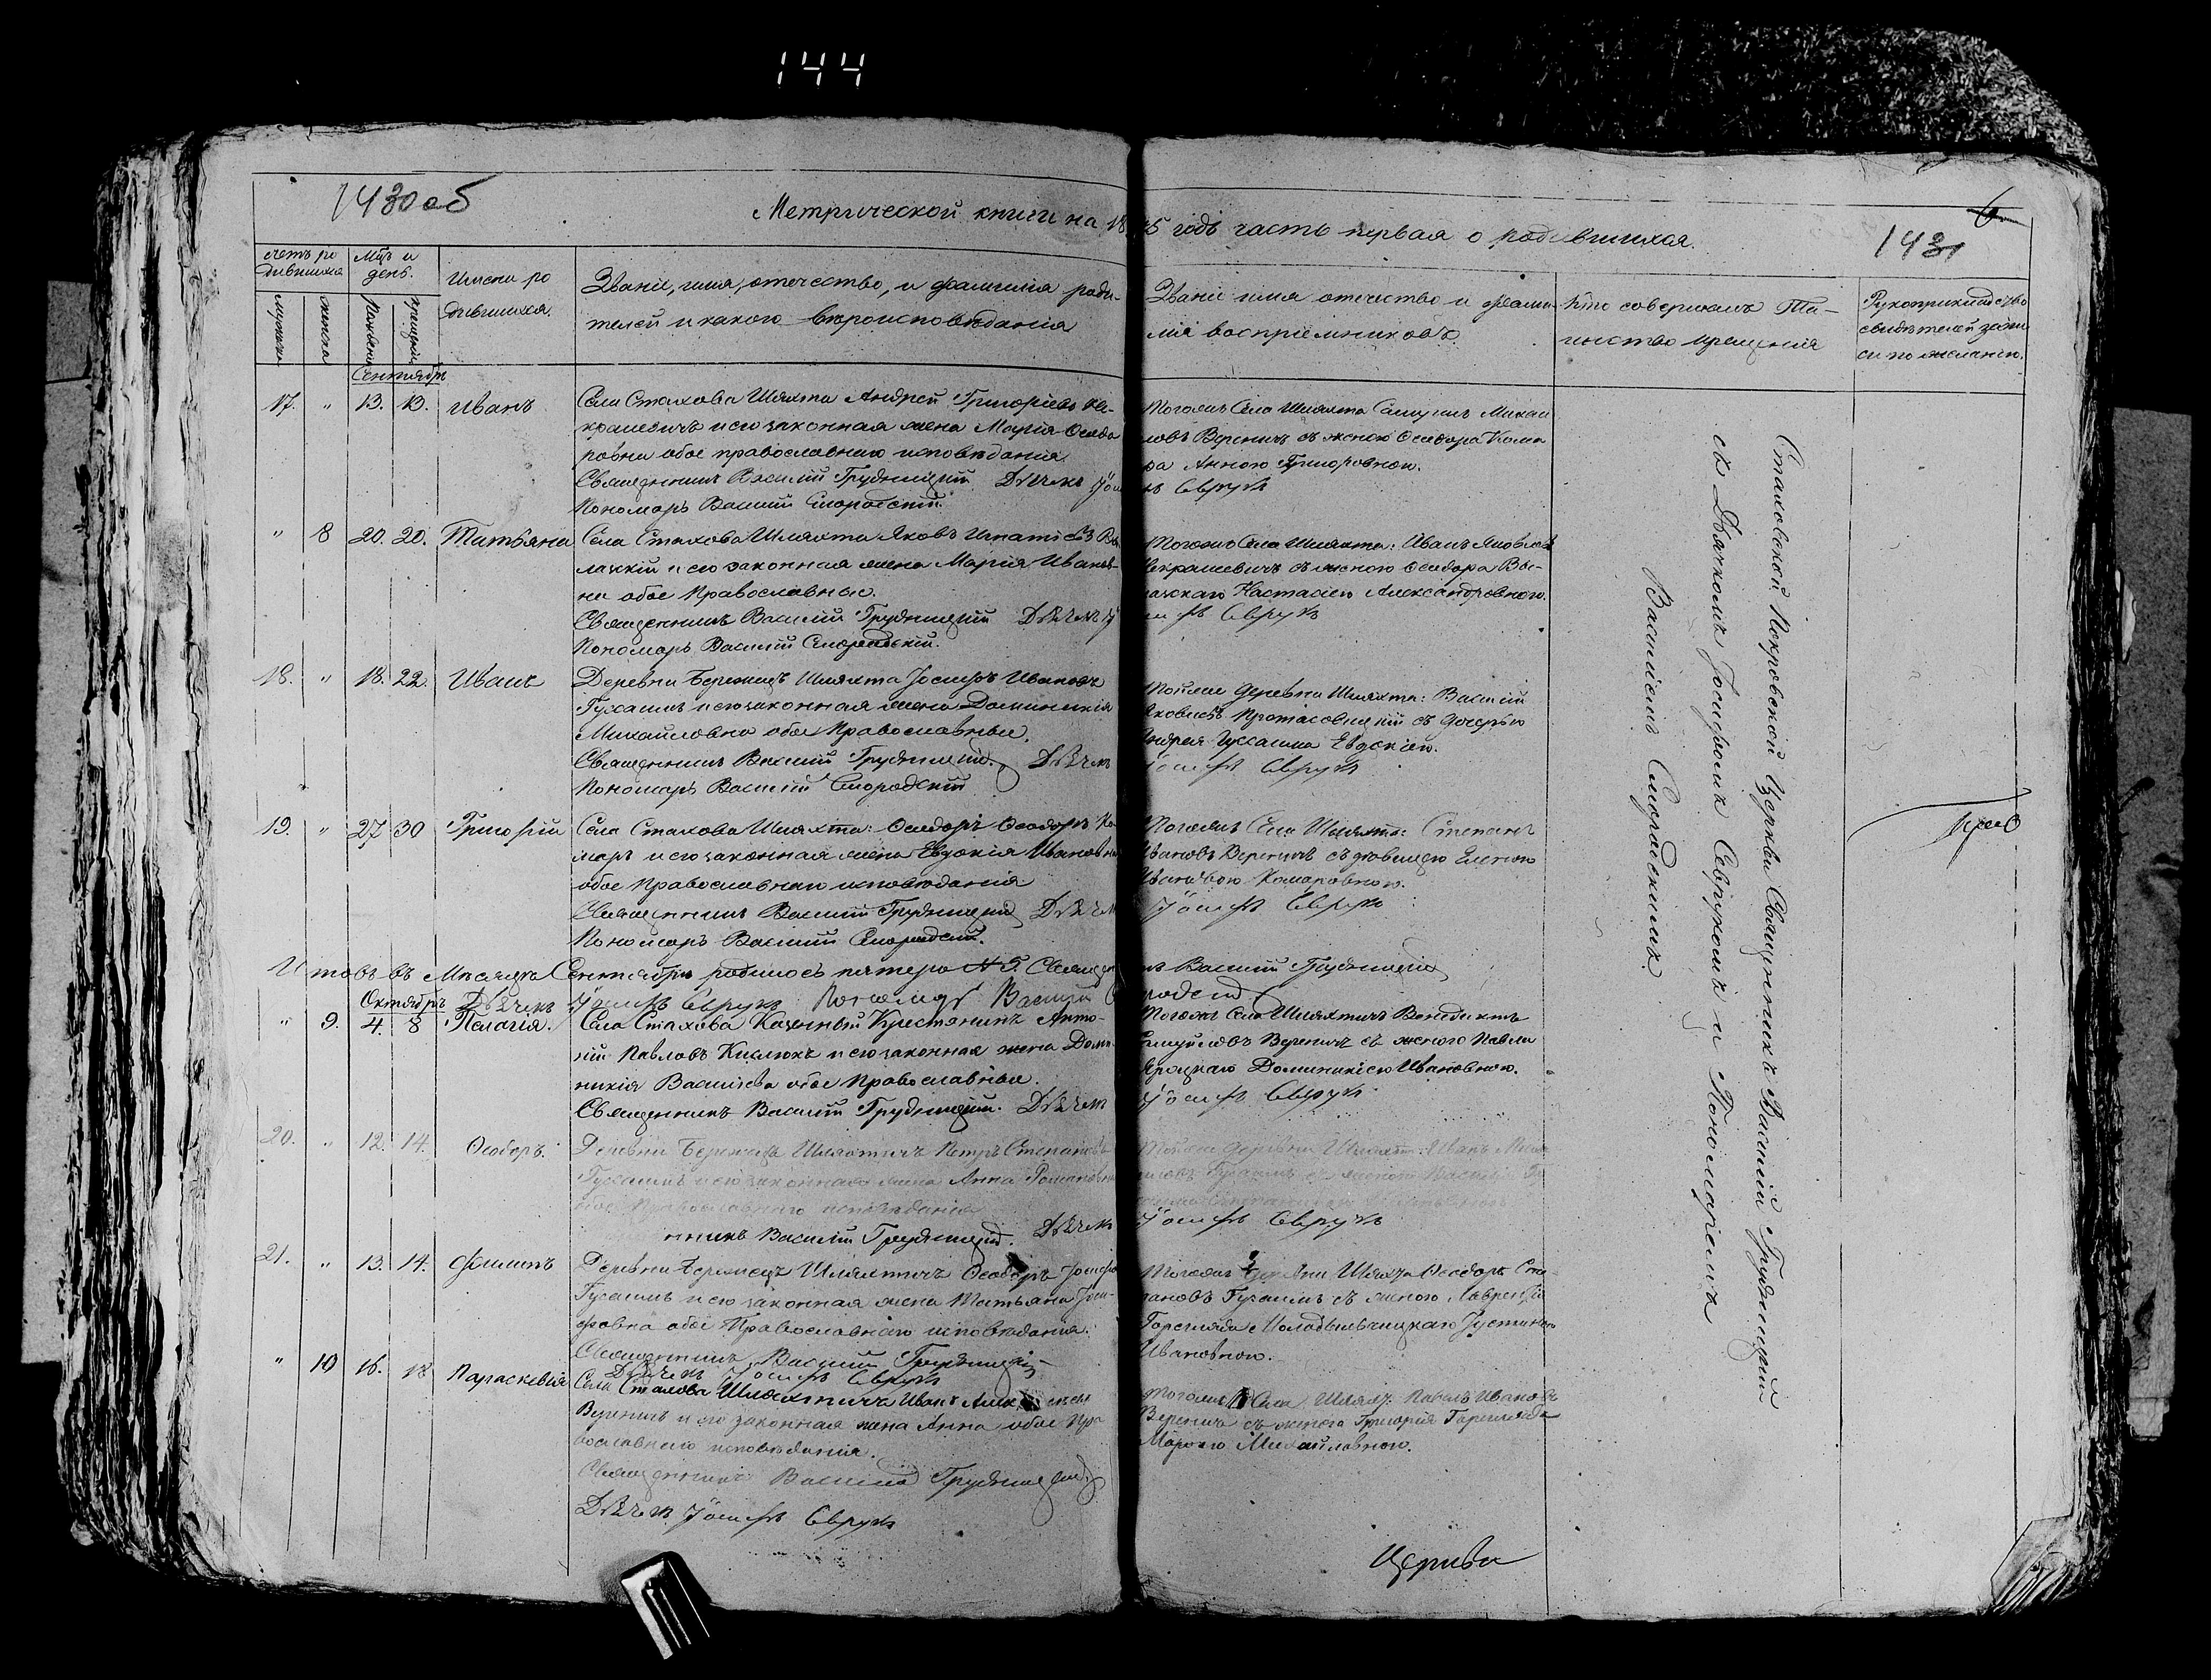 144
1430 об
Метрической книги на 18
45 годъ часть первая о родившихся.
6
1431
счетъ ро
дившихся
мужеска
женска
Мцъ и
день.
рожденія
крещенія
Имена ро
дившихся
Званіе, имя, отечество, и фамилия роди-
телей и какого вѣроисповѣданія
Званіе имя отечество и фами-
лія воспріемниковъ
Кто совершалъ Та-
инство крещенія
Рукоприкладство
свидѣтелей запи
си по желанію.
Сентябрь
17. " 13. 13. Иванъ
Села Стахова Шляхта Андрей Григоріевъ Не-
крашевичъ и его законная жена Марія Ѳеодо
ровна обое православнаго исповѣданія
Священникъ Василий Грудницкий Дьячекъ Іоси
Пономарь Василий Смородский
Тогожъ Села Шляхта Самуилъ Михаи
ловъ Вереничъ съ женою Ѳеодора Кома
ра Анною Григоровною.
фъ Севрукъ
" 8 20. 20. Татьяна
Села Стахова Шляхта Яковъ Игнатіевъ Вы
лазкій и его законная жена Марія Иванов-
на обое Православные.
Священникъ Василий Грудницкий Дьячекъ І
Пономарь Василий Смородский.
Тогожъ Села Шляхта: Иванъ Яковлевъ
Некрашевичъ съ женою Ѳеодора Вы-
лазскаго Настасіею Александровною.
осифъ Севрукъ
18. " 18. 22. Иванъ
Деревни Бережецъ Шляхта Іосифъ Ивановъ
Гусаимъ и его законная жена Доминикія
Михайловна обое Православные.
Священникъ Василий Грудницкий. Дьячекъ
Пономарь Василий Смородский
Тойже деревни Шляхта: Василий
Яковлевъ Протасовицкий съ дочерью
Андрея Гусаима Евдокіею.
Іосифъ Севрукъ
19. " 27 30 Григорій
Села Стахова Шляхта: Ѳеодоръ Ѳеодоровъ Ко
маръ и его законная жена Евдокія Ивановна
обое Православнаго исповѣданія
Священникъ Василий Грудницкий Дьячекъ
Пономарь Василий Смородский.
Тогожъ Села Шляхта: Степанъ
Ивановъ Вереничъ съ дѣвицею Еленою
Ивановою Комаровною.
Іосифъ Севрукъ
Итого въ Месяцѣ Сентябрѣ родилось пятеро Священ
никъ Василий Грудницкий
Дьячекъ Іосифъ Севрукъ Пономарь Василий С
мородский
Октябрь
" 9. 4. 8 Пелагія.
Села Стахова Казенный Крестьянинъ Анто-
ній Павловъ Кислюкъ и его законная жена Доми-
никія Василіева обое Православные.
Священникъ Василий Грудницкий. Дьячекъ
Тогожъ Села Шляхтичъ Венедиктъ
Самуйловъ Вереничъ съ женою Павла
Ярецкаго Доминикіею Ивановною.
Іосифъ Севрукъ
20. " 12. 14. Ѳеодоръ.
Деревни Бережецъ Шляхтичъ Петръ Степановъ
Гусаимъ и его законная жена Анна Романовна
обое Православнаго исповѣданія
нникъ Василий Грудницкий. Дьячекъ
Тойже деревни Шляхт: Иванъ
Гусаимъ съ женою
Іосифъ Севрукъ
21. " 13. 14. Филипъ
Деревни Бережецъ Шляхтичъ Ѳеодоръ Іосифо
Гусаимъ и его законная жена Татьяна Іоси-
фовна обое Православнаго исповѣданія.
Священникъ Василий Грудницкий
Дьячекъ Іосифъ Севрукъ
Тогожъ Шляхта Ѳеодоръ Сте-
пановъ Гусаимъ съ женою Лаврентія
Горегляда Іустиною
Ивановною.
" 10 16. 18 Параскевія
Села Стахова Шляхтичъ Иванъ Алек
Вереничъ и его законная жена Анна обое Пра
вославнаго исповѣданія.
Священникъ Василий Грудницкий
Дьячекъ Іосифъ Севрукъ
Тогожъ Села Шляхт: Павелъ Ивановъ
Вереничъ съ женою Григорія Горегляда
Маріею Михайловною.
Стаховской Покровской Церкви Священникъ Василій Грудницкий
съ Дьячкомъ Іосифомъ Севрукомъ и Пономаремъ
Василіемъ Смородскимъ.
Церкви